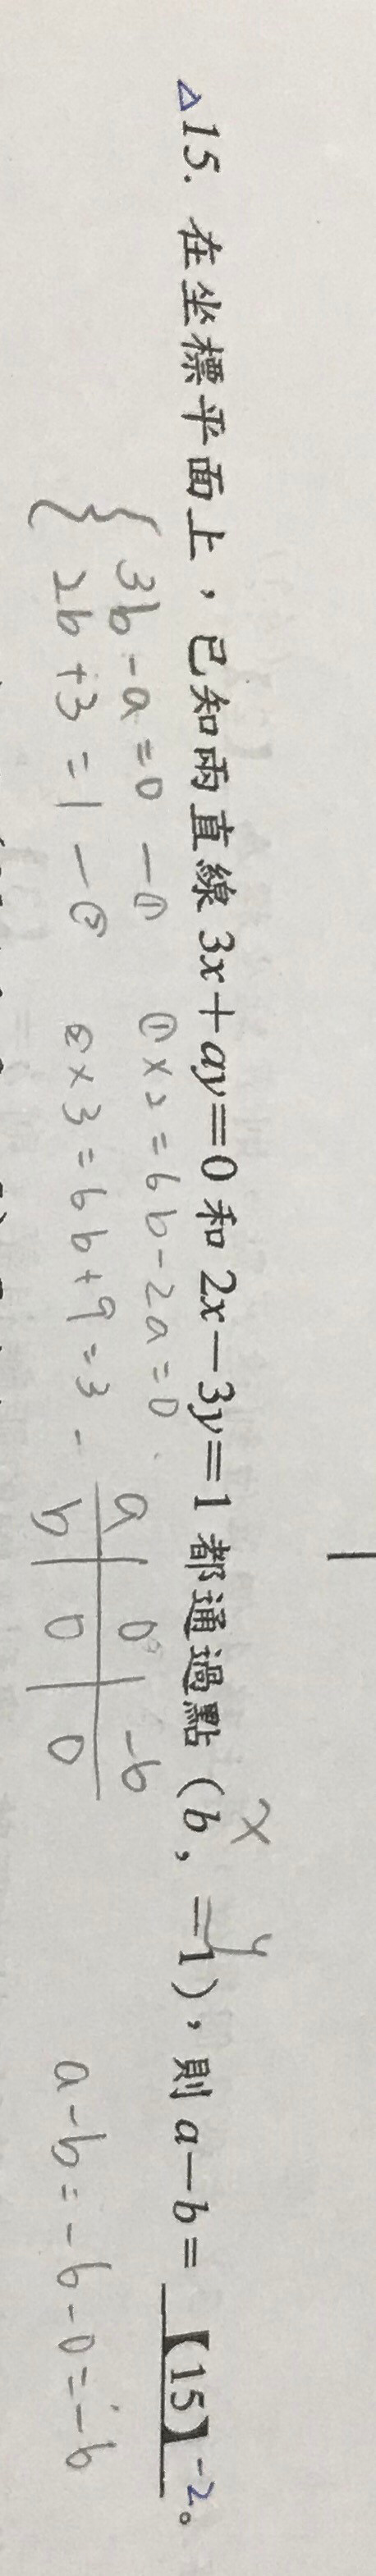 △15. 在坐標平面上,已知兩直線 3x+ay=0 和 2x-3y=1 都通過點 (b, -1),則 a-b= 【15】-2。
x y
3b-a=0 -①
2b+3=1 -②
①×2=6b-2a=0
②×3=6b+9=3
a 0 -6
b 0 0
a-b=-6-0=-6